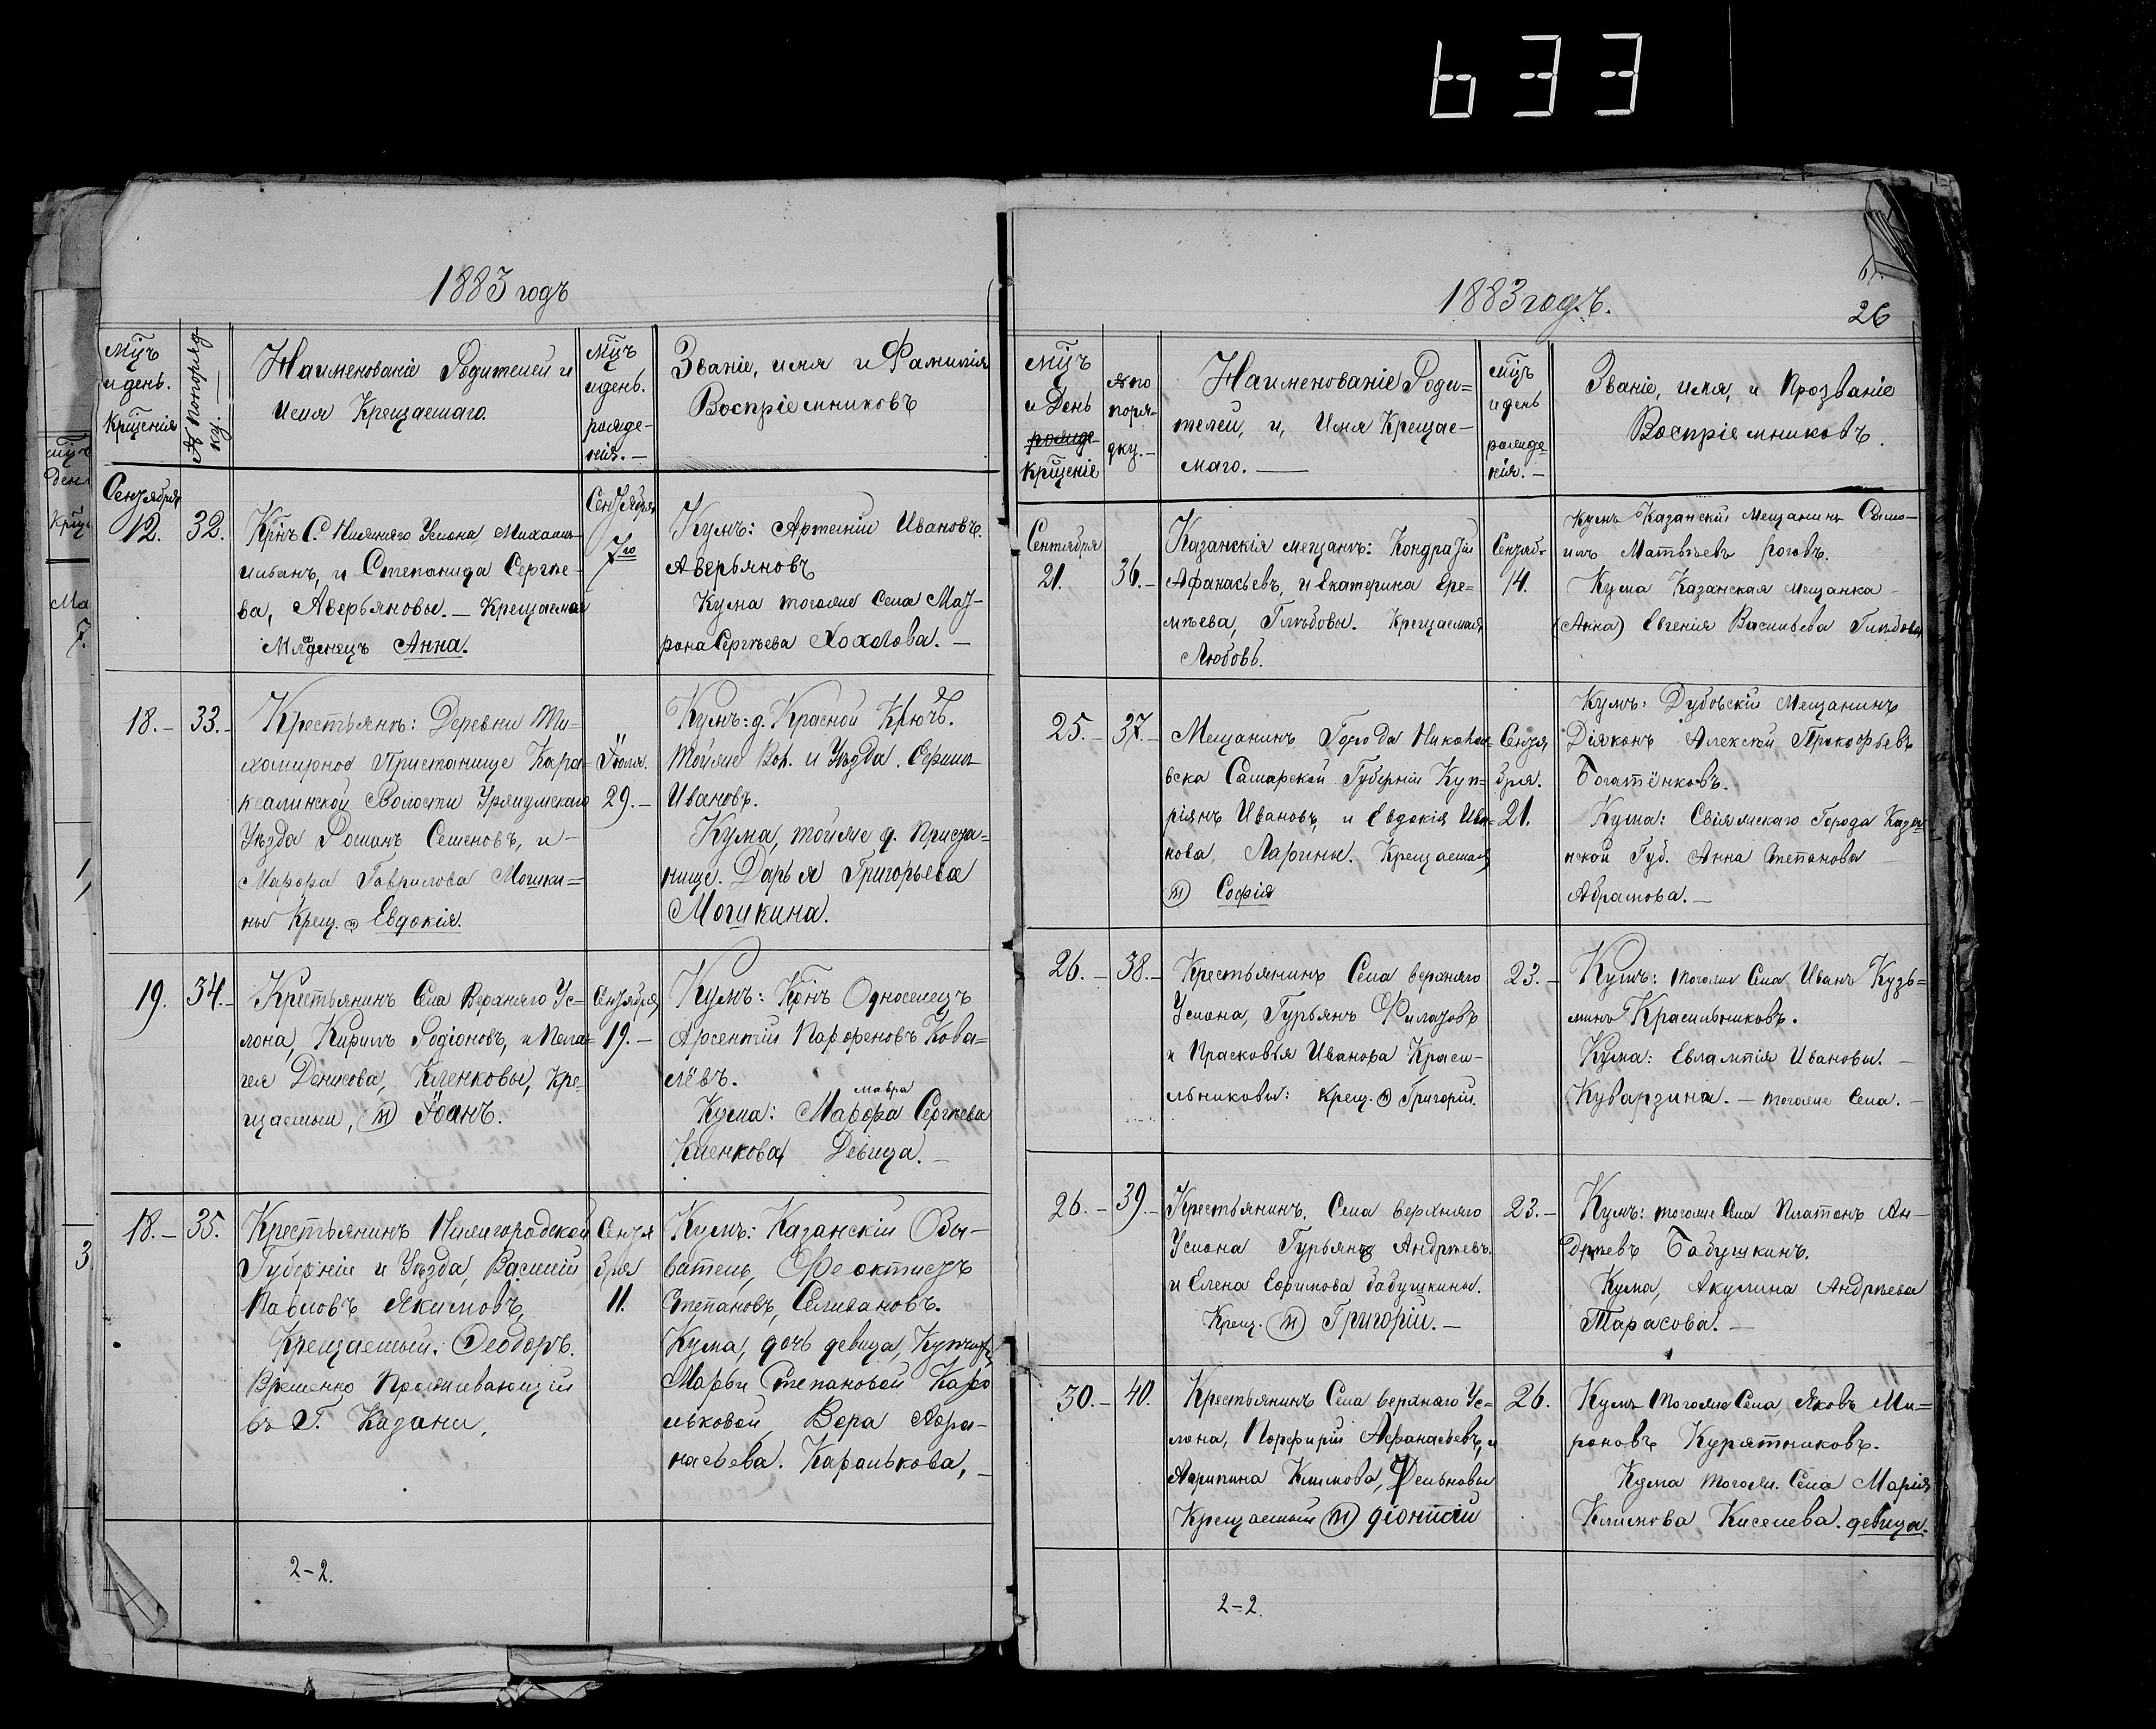 633
1883 годъ
Мцъ
и день.
Крщенія
№ по поряд
ку.
Наименованіе Родителей и
имя Крещаемаго.
Мцъ
и день.
рожде-
нія.—
Званіе, имя и Фамилія
Воспріемниковъ
Сентября
12.
32.
Крнъ С. Нижняго Услона Михаилъ
и Степанида Сергѣе-
ва, Аверьяновы.— Крещаемая
Млденецъ Анна.
Сентября
7го
Кумъ: Артемій Ивановъ.
Аверьяновъ
Кума тогоже Села Мат-
рона Сергѣева Хохлова.—
18.—
33.—
Крестьянъ: Деревни Ти-
хомирное Пристанище Кара-
Волости Уржумскаго
Уѣзда Романъ Семеновъ, и
Марфа Гаврилова Мошки=
ны Крещ. м Евдокія.
Іюля.
29.—
Кумъ: д. Красной Ключъ.
тойже Вол. и Уѣзда. Ефимъ
Ивановъ.
Кума, тойже д. Приста-
нище. Дарья Григорьева
Мошкина.
19.
34.—
Крестьянинъ Села Верхняго Ус-
лона, Кирилъ Родіоновъ, и Пела-
гея Денисова, Кленковы, Кре-
щаемый, м Іоанъ.
Сентября,
19.—
Кумъ: Крнъ Односелецъ
Арсентій Парфеновъ Кова=
лёвъ.
Мавра
Кума: Марфа Сергѣева
Кленкова Девица.—
18.—
35.
Крестьянинъ Нижегородской
Губерніи и Уѣзда, Василій
Павловъ Якимовъ,
Крещаемый. Ѳеодоръ.
Временно Проживающій
въ Г. Казани.
Сентя
бря
11.
Кумъ: Казанскій Обы-
ватель, Феоктистъ
Степановъ, Селивановъ.
Кума, дочь девица, Купчихи,
Марьи Степановой Каро
льковой, Вера Афа-
насьева. Каролькова,—
2-2.
1883 годъ.
26
Мцъ
и День
рожде-
Крщеніе
№ по
поря-
дку.—
Наименованіе Роди=
телей, и, Имя Крещае-
маго.—
Мцъ
и день
рожде-
нія.—
Званіе, имя, и Прозваніе
Воспріемниковъ.
Сентября
21.
36.—
Казанскія мещанъ: Кондратій
Афанасьевъ, и Екатерина Ере=
мѣева, Глѣбовы. Крещаемая
Любовь.
Сентяб
14.
Кумъ Казанскій Мещанинъ Само-
илъ Матвѣевъ Роговъ.
Кума Казанская Мещанка
(Анна) Евгенія Васильева Глѣбова
25.—
37.—
Мещанинъ Города Николае-
вска Самарской Губерніи Куп-
ріянъ Ивановъ, и Евдокія Ива-
нова, Ларины. Крещаемая
м Софія
Сентя
бря.
21.
Кумъ: Дубовскій Мещанинъ
Діяконъ Алексѣй Прокофьевъ
Богатёнковъ.
Кума: Свіяжскаго Города Казан
нской Губ. Анна Степанова
Абрамова.—
26.—
38.—
Крестьянинъ Села верхняго
Услона, Гурьянъ Филатовъ
и Прасковья Иванова Краси-
льниковы: крещ. м Григорій.
23.—
Кумъ: тогоже Села Иванъ Кузь=
минъ Красильниковъ.
Кума: Евлампія Ивановы.—
Куварзина.— тогоже Села.—
26.—
39.—
Крестьянинъ. Села верхняго
Услона Гурьянъ Андрѣевъ.
и Елена Ефимова бабушкины.
Крещ. м Григорій.—
23.—
Кумъ: тогоже Села Платонъ Ан-
дрѣевъ Бабушкинъ.
Кума, Акулина Андрѣева
Тарасова.—
30.—
40.
Крестьянинъ Села верхняго Ус=
лона, Порфирій Афанасьевъ, и
Агрипина Климова,
Крещаемый м діонисій
26.
Кумъ тогоже Села, Яковъ Ми=
роновъ Курятниковъ.
Кума тогоже. Села Марія
Климова Киселева. девица.
2=2.